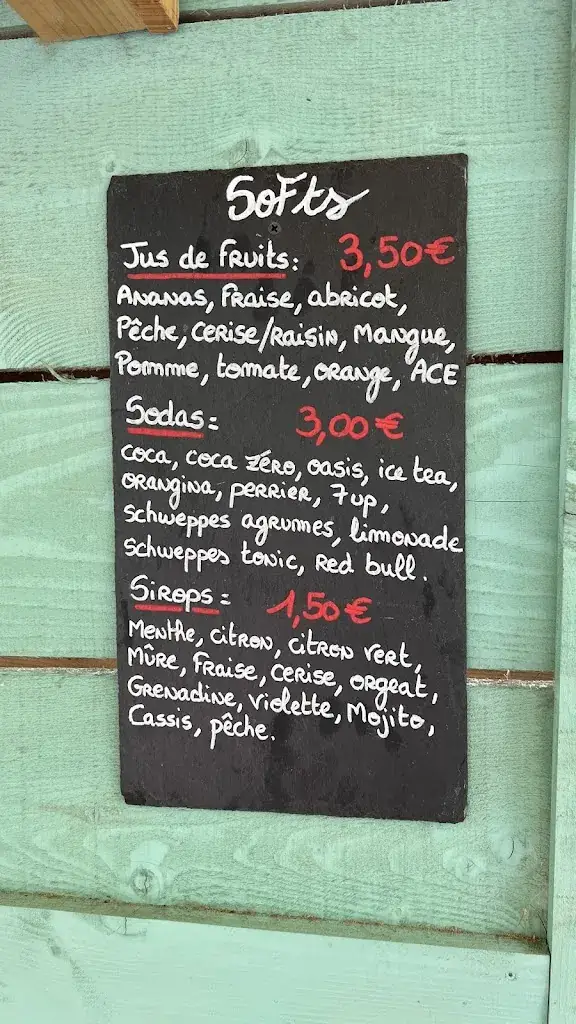 Softs
Jus de fruits: 3,50€
Ananas, Fraise, abricot,
Pêche, cerise/raisin, Mangue,
Pomme, tomate, orange, ACE
Sodas: 3,00€
coca, coca zéro, oasis, ice tea,
orangina, perrier, 7up,
schweppes agrumes, limonade
schweppes tonic, Red bull.
Sirops: 1,50€
Menthe, citron, citron vert,
Mûre, Fraise, cerise, orgeat,
Grenadine, violette, Mojito,
Cassis, pêche.